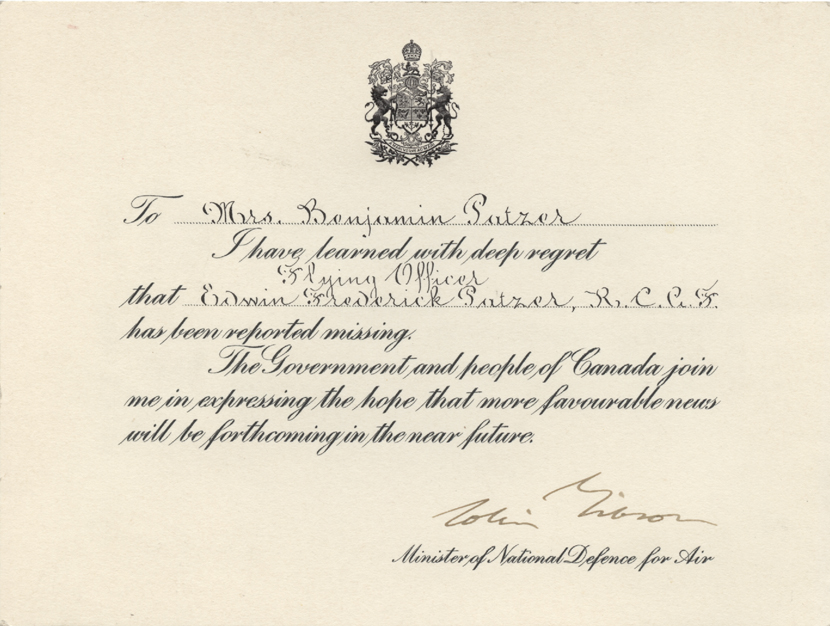 To Mrs. Benjamin Patzer
I have learned with deep regret
Flying Officer
that Edwin Frederick Patzer, R.C.A.F.
has been reported missing.
The Government and people of Canada join
me in expressing the hope that more favourable news
will be forthcoming in the near future.
Colin Gibson
Minister of National Defence for Air